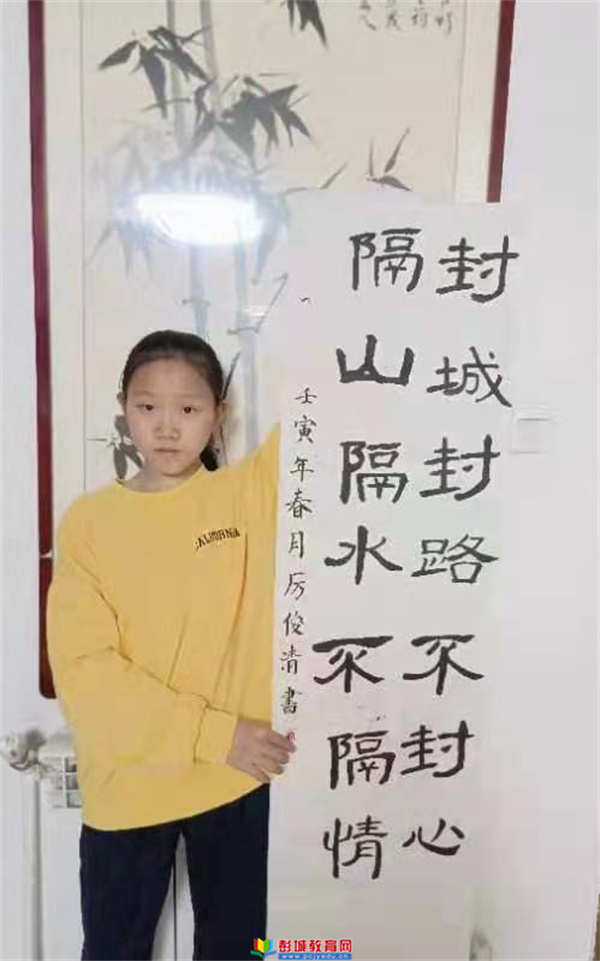 封城封路不封心
隔山隔水不隔情
壬寅年春月厉俊清書
CALIFORNIA
彭城教育网
www.pcjyedu.cn